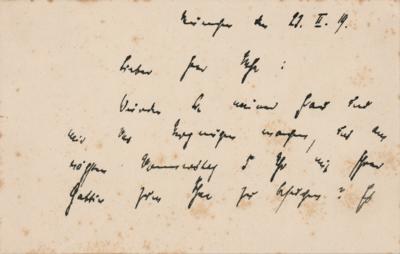 München den 21. II. 19.
Lieber Herr Uhse:
Würden Sie meiner Frau und
mir das Vergnügen machen, uns am
nächsten Donnerstag 5 Uhr mit Ihrer
Gattin zum Thee zu besuchen? Es